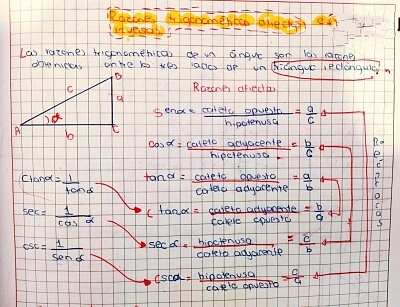 Razones trigonométricas directas e
inversas
Las razones trigonométricas de un ángulo son las razones
obtenidas entre los tres lados de un triángulo rectángulo
Razones directas
B
c
a
A α b C
Sen α = cateto opuesto / hipotenusa = a/c
Cos α = cateto adyacente / hipotenusa = b/c
Ctan α = 1/tan α
tan α = cateto opuesto / cateto adyacente = a/b
Ctan α = cateto adyacente / cateto opuesto = b/a
sec = 1/cos α
sec α = hipotenusa / cateto adyacente = c/b
csc = 1/sen α
Csc α = hipotenusa / cateto opuesto = c/a
Recíprocas